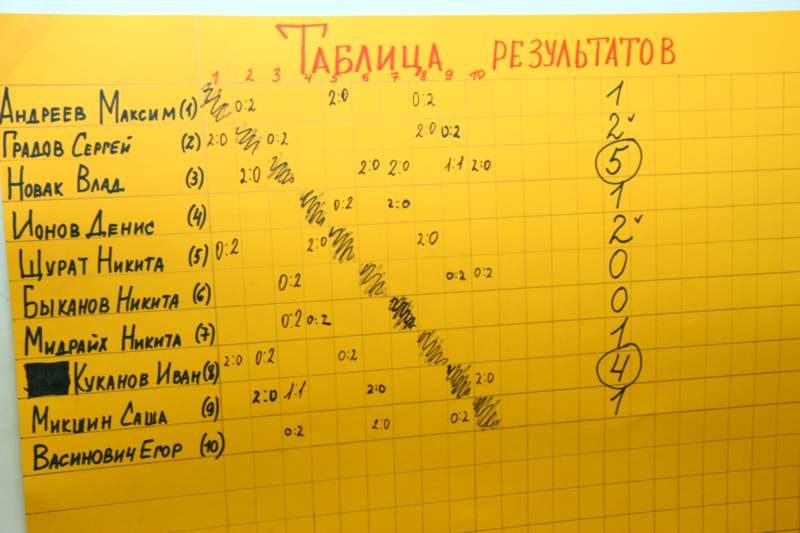 Таблица результатов
1 2 3 4 5 6 7 8 9 10
Андреев Максим (1) 0:2 2:0 0:2 1
Градов Сергей (2) 2:0 0:2 2:0 0:2 2
Новак Влад (3) 2:0 2:0 2:0 1:1 2:0 5
Ионов Денис (4) 0:2 2:0 1
Щурат Никита (5) 0:2 2:0 2:0 2
Быканов Никита (6) 0:2 0:2 0:2 0
Мидрайх Никита (7) 0:2 0:2 0
Куканов Иван (8) 2:0 0:2 0:2 1
Микшин Саша (9) 2:0 1:1 2:0 2:0 4
Васинович Егор (10) 0:2 2:0 0:2 1